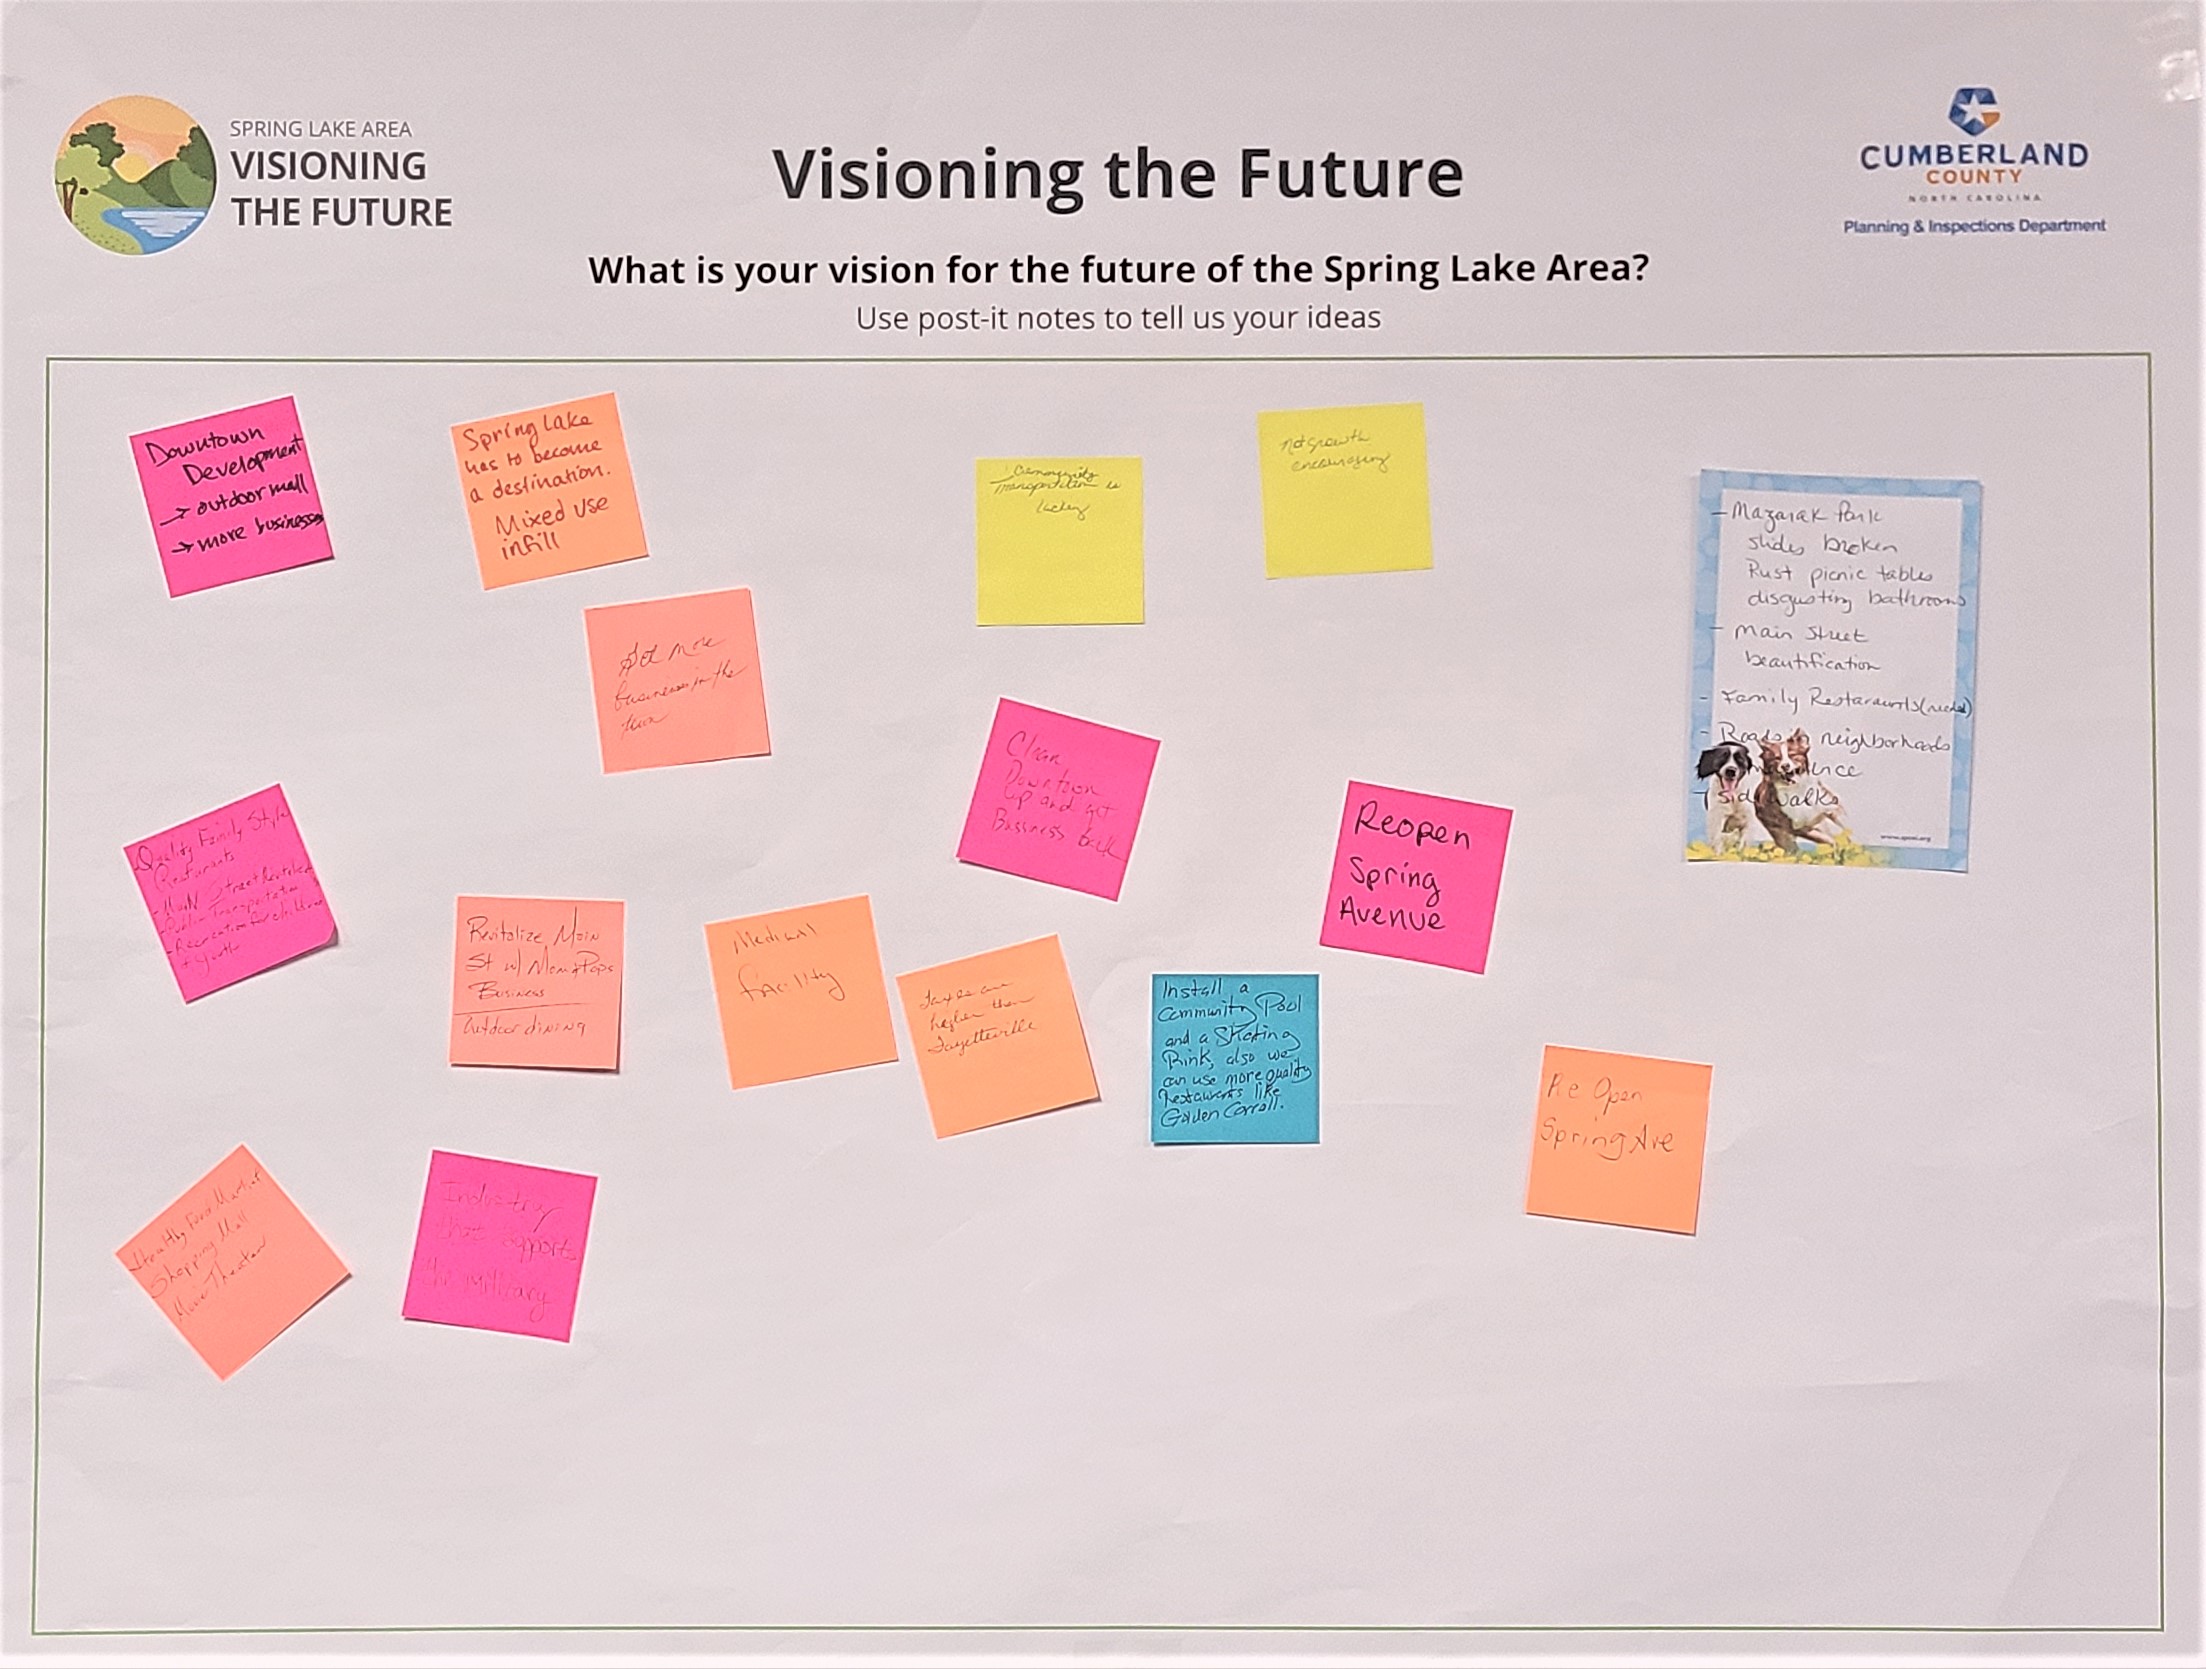 SPRING LAKE AREA
VISIONING
THE FUTURE
Visioning the Future
CUMBERLAND
COUNTY
NORTH CAROLINA
Planning & Inspections Department
What is your vision for the future of the Spring Lake Area?
Use post-it notes to tell us your ideas
Downtown
Development
→ outdoor mall
→ more businesses
Spring Lake
has to become
a destination.
Mixed use
infill
Community
Transportation is
not growth
encouraging
- Mazarak Park
slides broken
Rust picnic tables
disgusting bathrooms
- Main Street
beautification
- Family Restaraunts (needed)
- Roads in neighborhoods
sidewalks
www.spcai.org
Get more
businesses in the
town
Clean
Downtown
up and get
Bussiness back
Reopen
Spring
Avenue
-Quality Family Style
Resturants
- Main Street
-Public Transportation
-Recreation for children
+ youth
Revitalize Main
St w/ Mom & Pops
Business
Outdoor dining
Medical
facility
Taxes are
higher than
Fayetteville
Install a
Community Pool
and a Skating
Rink, also we
can use more quality
restaurants like
Golden Corral.
Re Open
Spring Ave
Healthy Food Market
Shopping Mall
Movie Theater
Industry
that supports
the Military